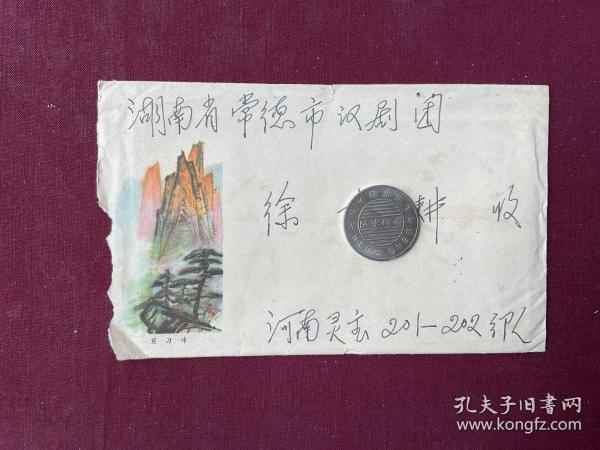 湖南省常德市汉剧团
徐 耕 收
河南灵宝201-202部队
剪刀峰
孔夫子旧书网
www.kongfz.com